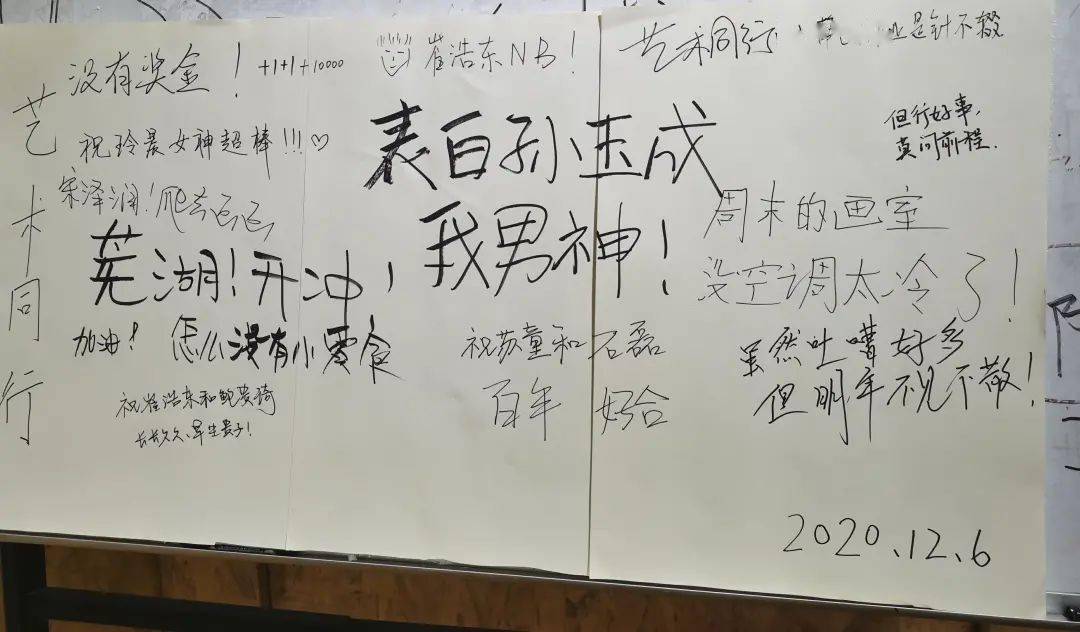 艺术同行
没有奖金！+1+1+10000
崔浩东NB！
艺术同行
是针不戳
祝玲晨女神超棒!!!♡
宋泽润！爬
表白孙玉成
我男神！
但行好事，
莫问前程.
芜湖！开冲！
周末的画室
没空调太冷了！
加油！
怎么没有小零食
祝苏童和石磊
百年好合
虽然吐嘈好多
但明年不见不散！
祝崔浩东和鲍
长长久久、早生贵子！
2020.12.6